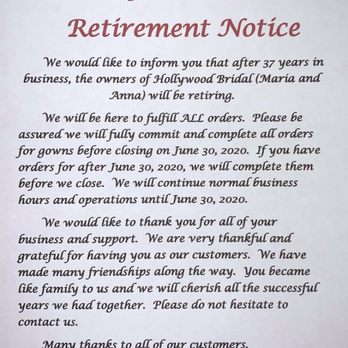 Retirement Notice
We would like to inform you that after 37 years in
business, the owners of Hollywood Bridal (Maria and
Anna) will be retiring.
We will be here to fulfill ALL orders. Please be
assured we will fully commit and complete all orders
for gowns before closing on June 30, 2020. If you have
orders for after June 30, 2020, we will complete them
before we close. We will continue normal business
hours and operations until June 30, 2020.
We would like to thank you for all of your
business and support. We are very thankful and
grateful for having you as our customers. We have
made many friendships along the way. You became
like family to us and we will cherish all the successful
years we had together. Please do not hesitate to
contact us.
Many thanks to all of our customers.